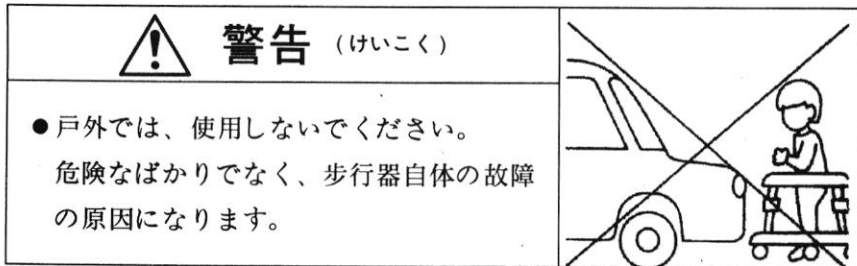 警告 (けいこく)
●戸外では、使用しないでください。
危険なばかりでなく、歩行器自体の故障
の原因になります。